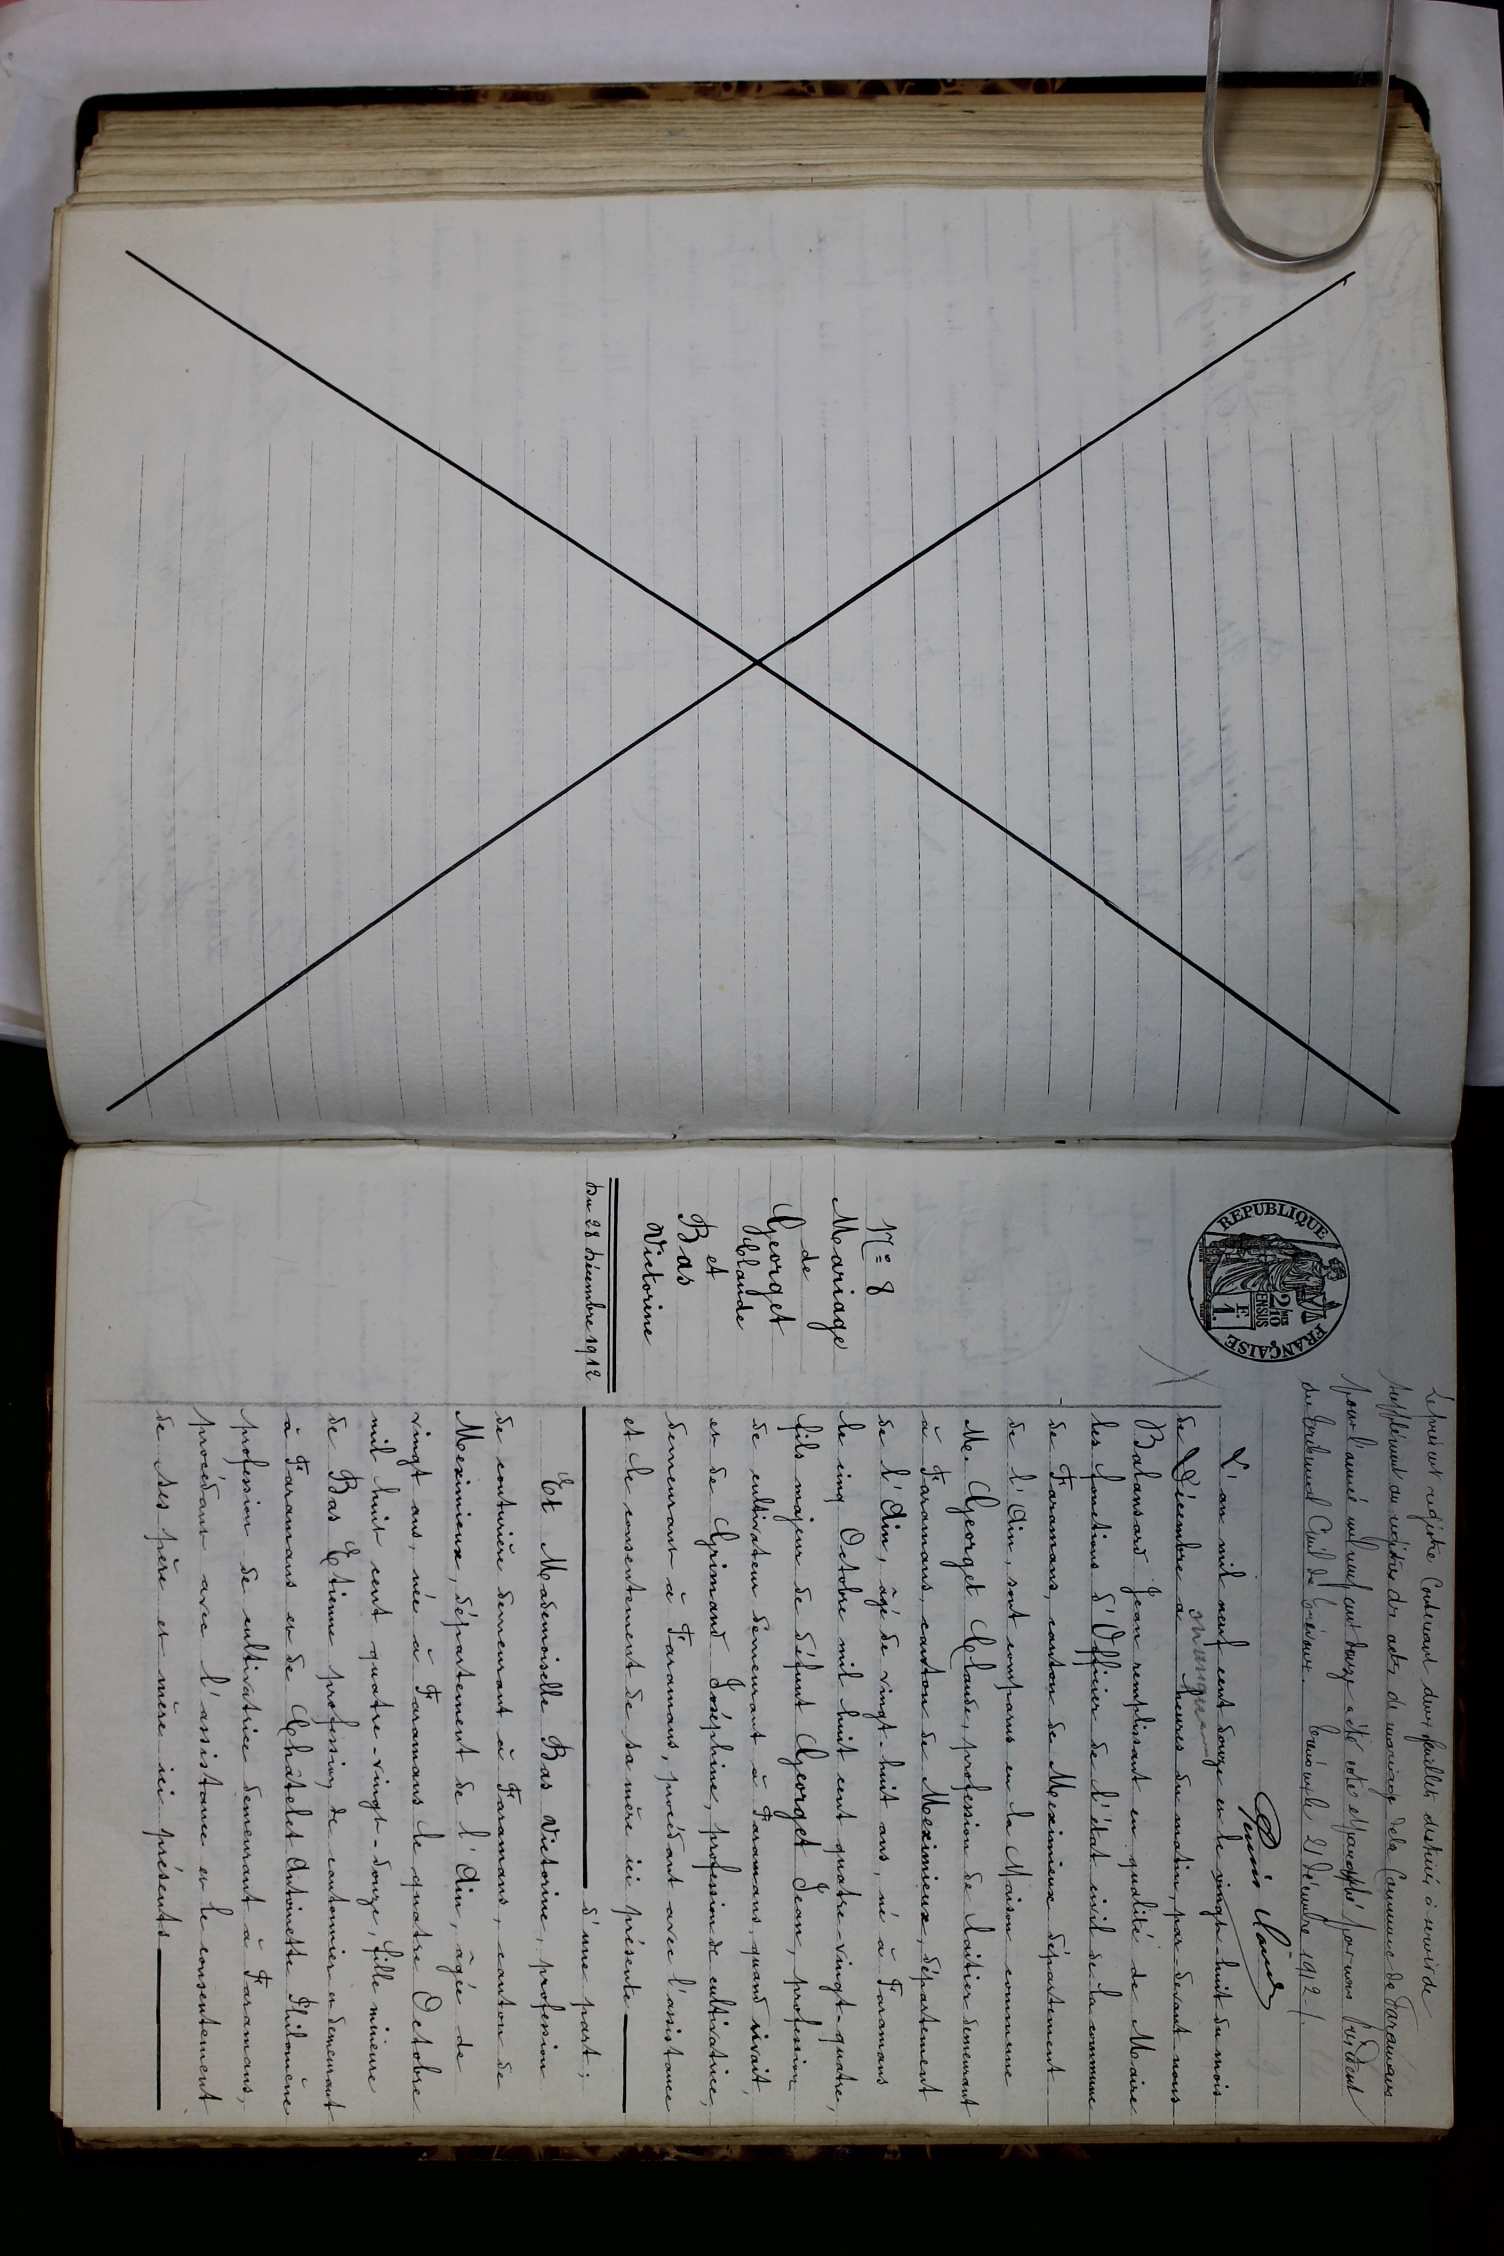 Le présent registre contenant deux feuillets destiné, à servir de
supplément au registre des actes de mariage de la Commune de Faramans
pour l'année mil neuf cent douze a été coté et paraphé par nous Président
du Tribunal Civil de Trévoux. Trévoux le 21 Décembre 1912./.
REPUBLIQUE FRANÇAISE
2/10 MES
EN SUS
1. F.
N° 8
Mariage
de
Georget
Claude
et
Bas
Victorine
Du 28 Décembre 1912
L'an mil neuf cent douze et le vingt-huit du mois
de Décembre à heures du matin, par devant nous
manque
Balansard Jean remplissant en qualité de Maire
les fonctions d'Officier de l'état civil de la commune
de Faramans, canton de Meximieux département
de l'Ain, sont comparus en la Maison commune
M. Georget Claude, profession de laitier demeurant
à Faramans, canton de Meximieux, département
de l'Ain, âgé de vingt-huit ans, né à Faramans
le cinq Octobre mil huit cent quatre-vingt-quatre,
fils majeur de défunt Georget Jean, profession
de cultivateur demeurant à Faramans, quand vivait,
et de Grimand Joséphine, profession de cultivatrice,
demeurant à Faramans, procédant avec l'assistance
et le consentement de sa mère ici présente
d'une part;
Et Mademoiselle Bas Victorine, profession
de couturière demeurant à Faramans, canton de
Meximieux, département de l'Ain, âgée de
vingt ans, née à Faramans le quatre Octobre
mil huit cent quatre-vingt-douze, fille mineure
de Bas Etienne profession de cantonnier et demeurant
à Faramans et de Châtelet Antoinette Philomène
profession de cultivatrice demeurant à Faramans,
procédant avec l'assistance et le consentement
de ses père et mère ici présents